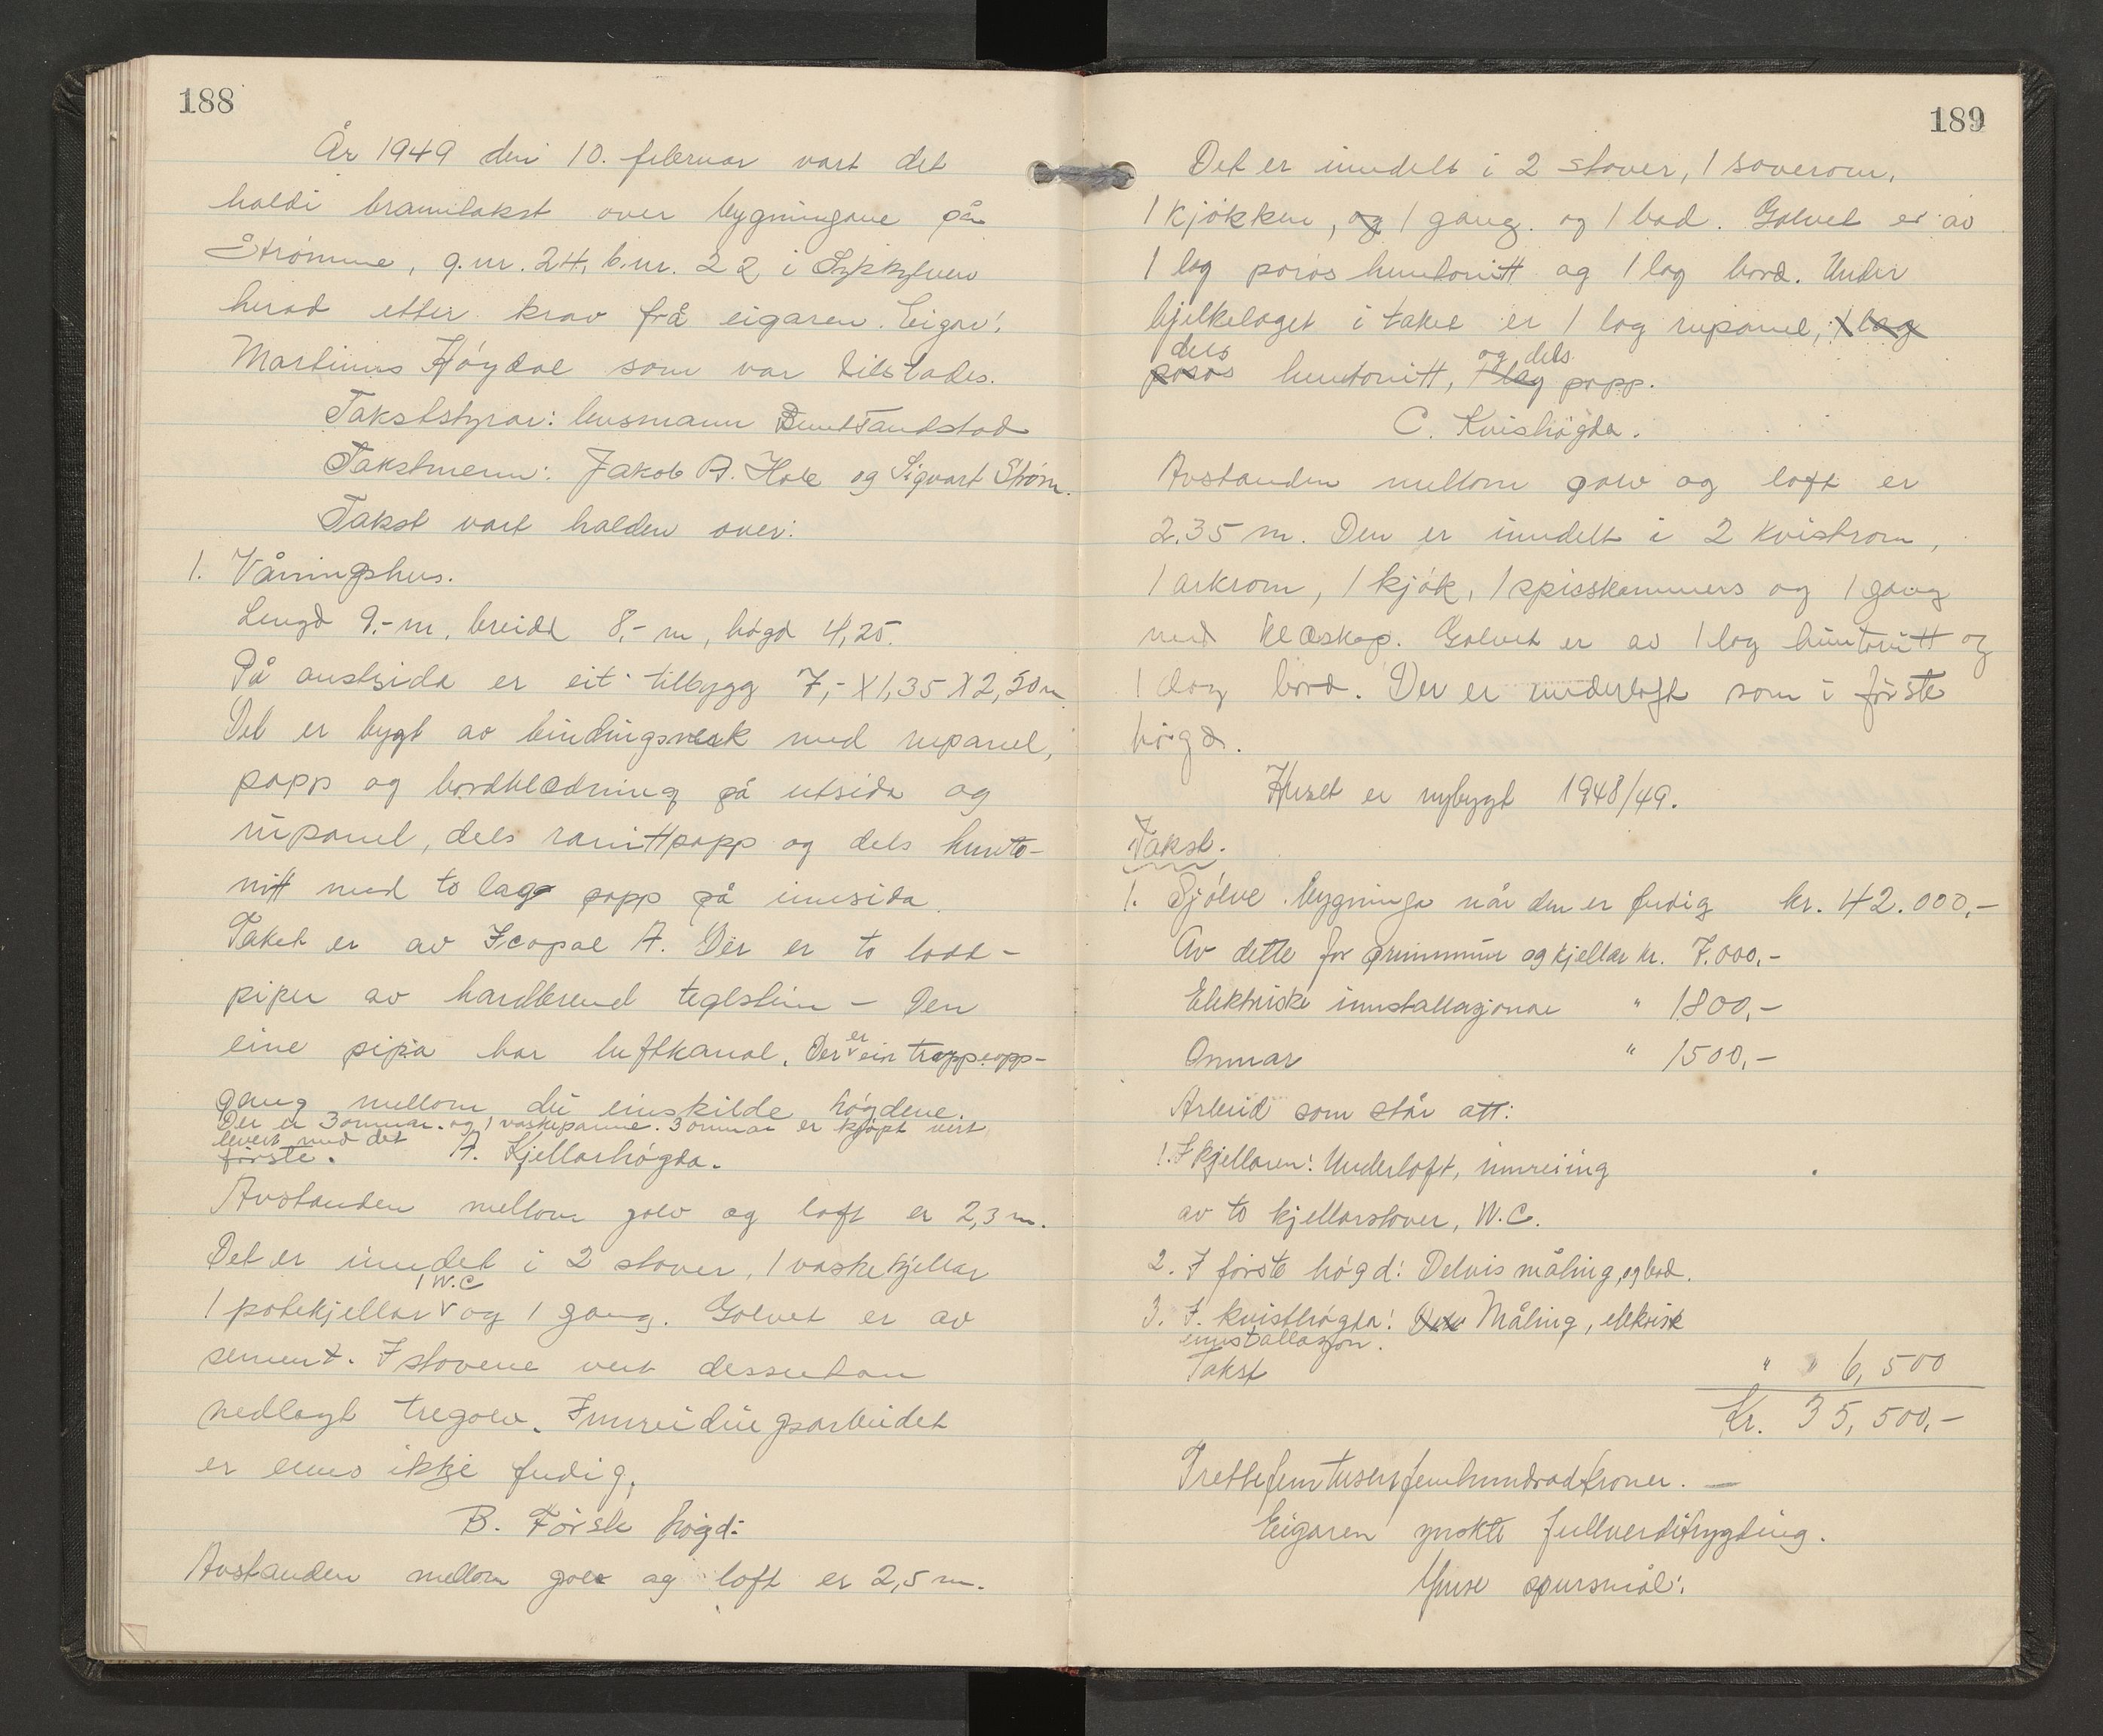 188
År 1949 den 10. februar vart det
haldi branntakst over bygningane på
Strømme, g.nr. 24, b.nr. 22 i Sykkylven
herad etter krav frå eigaren. Eigar:
Martinus Høydal som var tilstades.
Takststyrar: lensmann Bernt Tandstad
Takstmenn: Jakob A. Hole og Sigvart Strøm.
Takst vart halden over:
1. Våningshus.
Lengd 9,- m, breidd 8,- m, høgd 4,25.
På austsida er eit tilbygg 7,- X 1,35 X 2,50 m
Det er bygt av bindingsverk med rupanel,
papp og bordklædning på utsida og
rupanel, dels ranittpapp og dels hunto-
nitt med to lag papp på innsida.
Taket er av Icopal A. Der er to lodd-
piper av hardbrend teglstein - Den
eine pipa har luftkanal. Der er ein trappeopp-
gang mellom dei einskilde høgdene.
Der er 3 omnar. og 1 vaskepanne. 3 omnar er kjøpt vert
levert med det
første. A. Kjellarhøgda.
Avstanden mellom golv og loft er 2,3 m.
Det er inndelt i 2 stover, 1 vaskekjellar
1 W.C
1 potekjellar og 1 gang. Golvet er av
sement. I stovene vert dessutan
nedlagt tregolv. Innreidingsarbeidet
er enno ikkje ferdig.
B. Første høgd:
Avstanden mellom golv og loft er 2,5 m.
189
Det er inndelt i 2 stover, 1 soverom,
1 kjøkken, og 1 gang. og 1 bad. Golvet er av
1 lag porøs huntonitt og 1 lag bord. Under
bjelkelaget i taket er 1 lag rupanel, 1 lag
dels og dels
porøs huntonitt, 1 lag papp.
C. Kvisthøgda.
Avstanden mellom golv og loft er
2.35 m. Den er inndelt i 2 kvistrom,
1 arkrom, 1 kjøk, 1 spisskammers og 1 gang
med klæskap. Golvet er av 1 lag huntonitt og
1 lag bord. Der er underloft som i første
høgd.
Huset er nybygt 1948/49.
Takst.
1. Sjølve bygninga når den er ferdig kr. 42.000,-
Av dette for grunnmur og kjellar kr. 7.000,-
Elektriske innstallasjonar " 1800,-
Omnar " 1500,-
Arbeid som står att:
1. I kjellaren: Underloft, innreiing
av to kjellarstover, W.C.
2. I første høgd: Delvis måling, og bad.
3. I. kvisthøgda: Måling, elektrisk
innstallasjon.
Takst " " 6,500
Kr. 35,500,-
Trettefemtusenfemhundradkroner. —
Eigaren ynskte fullverditrygding.
Ymse spursmål: